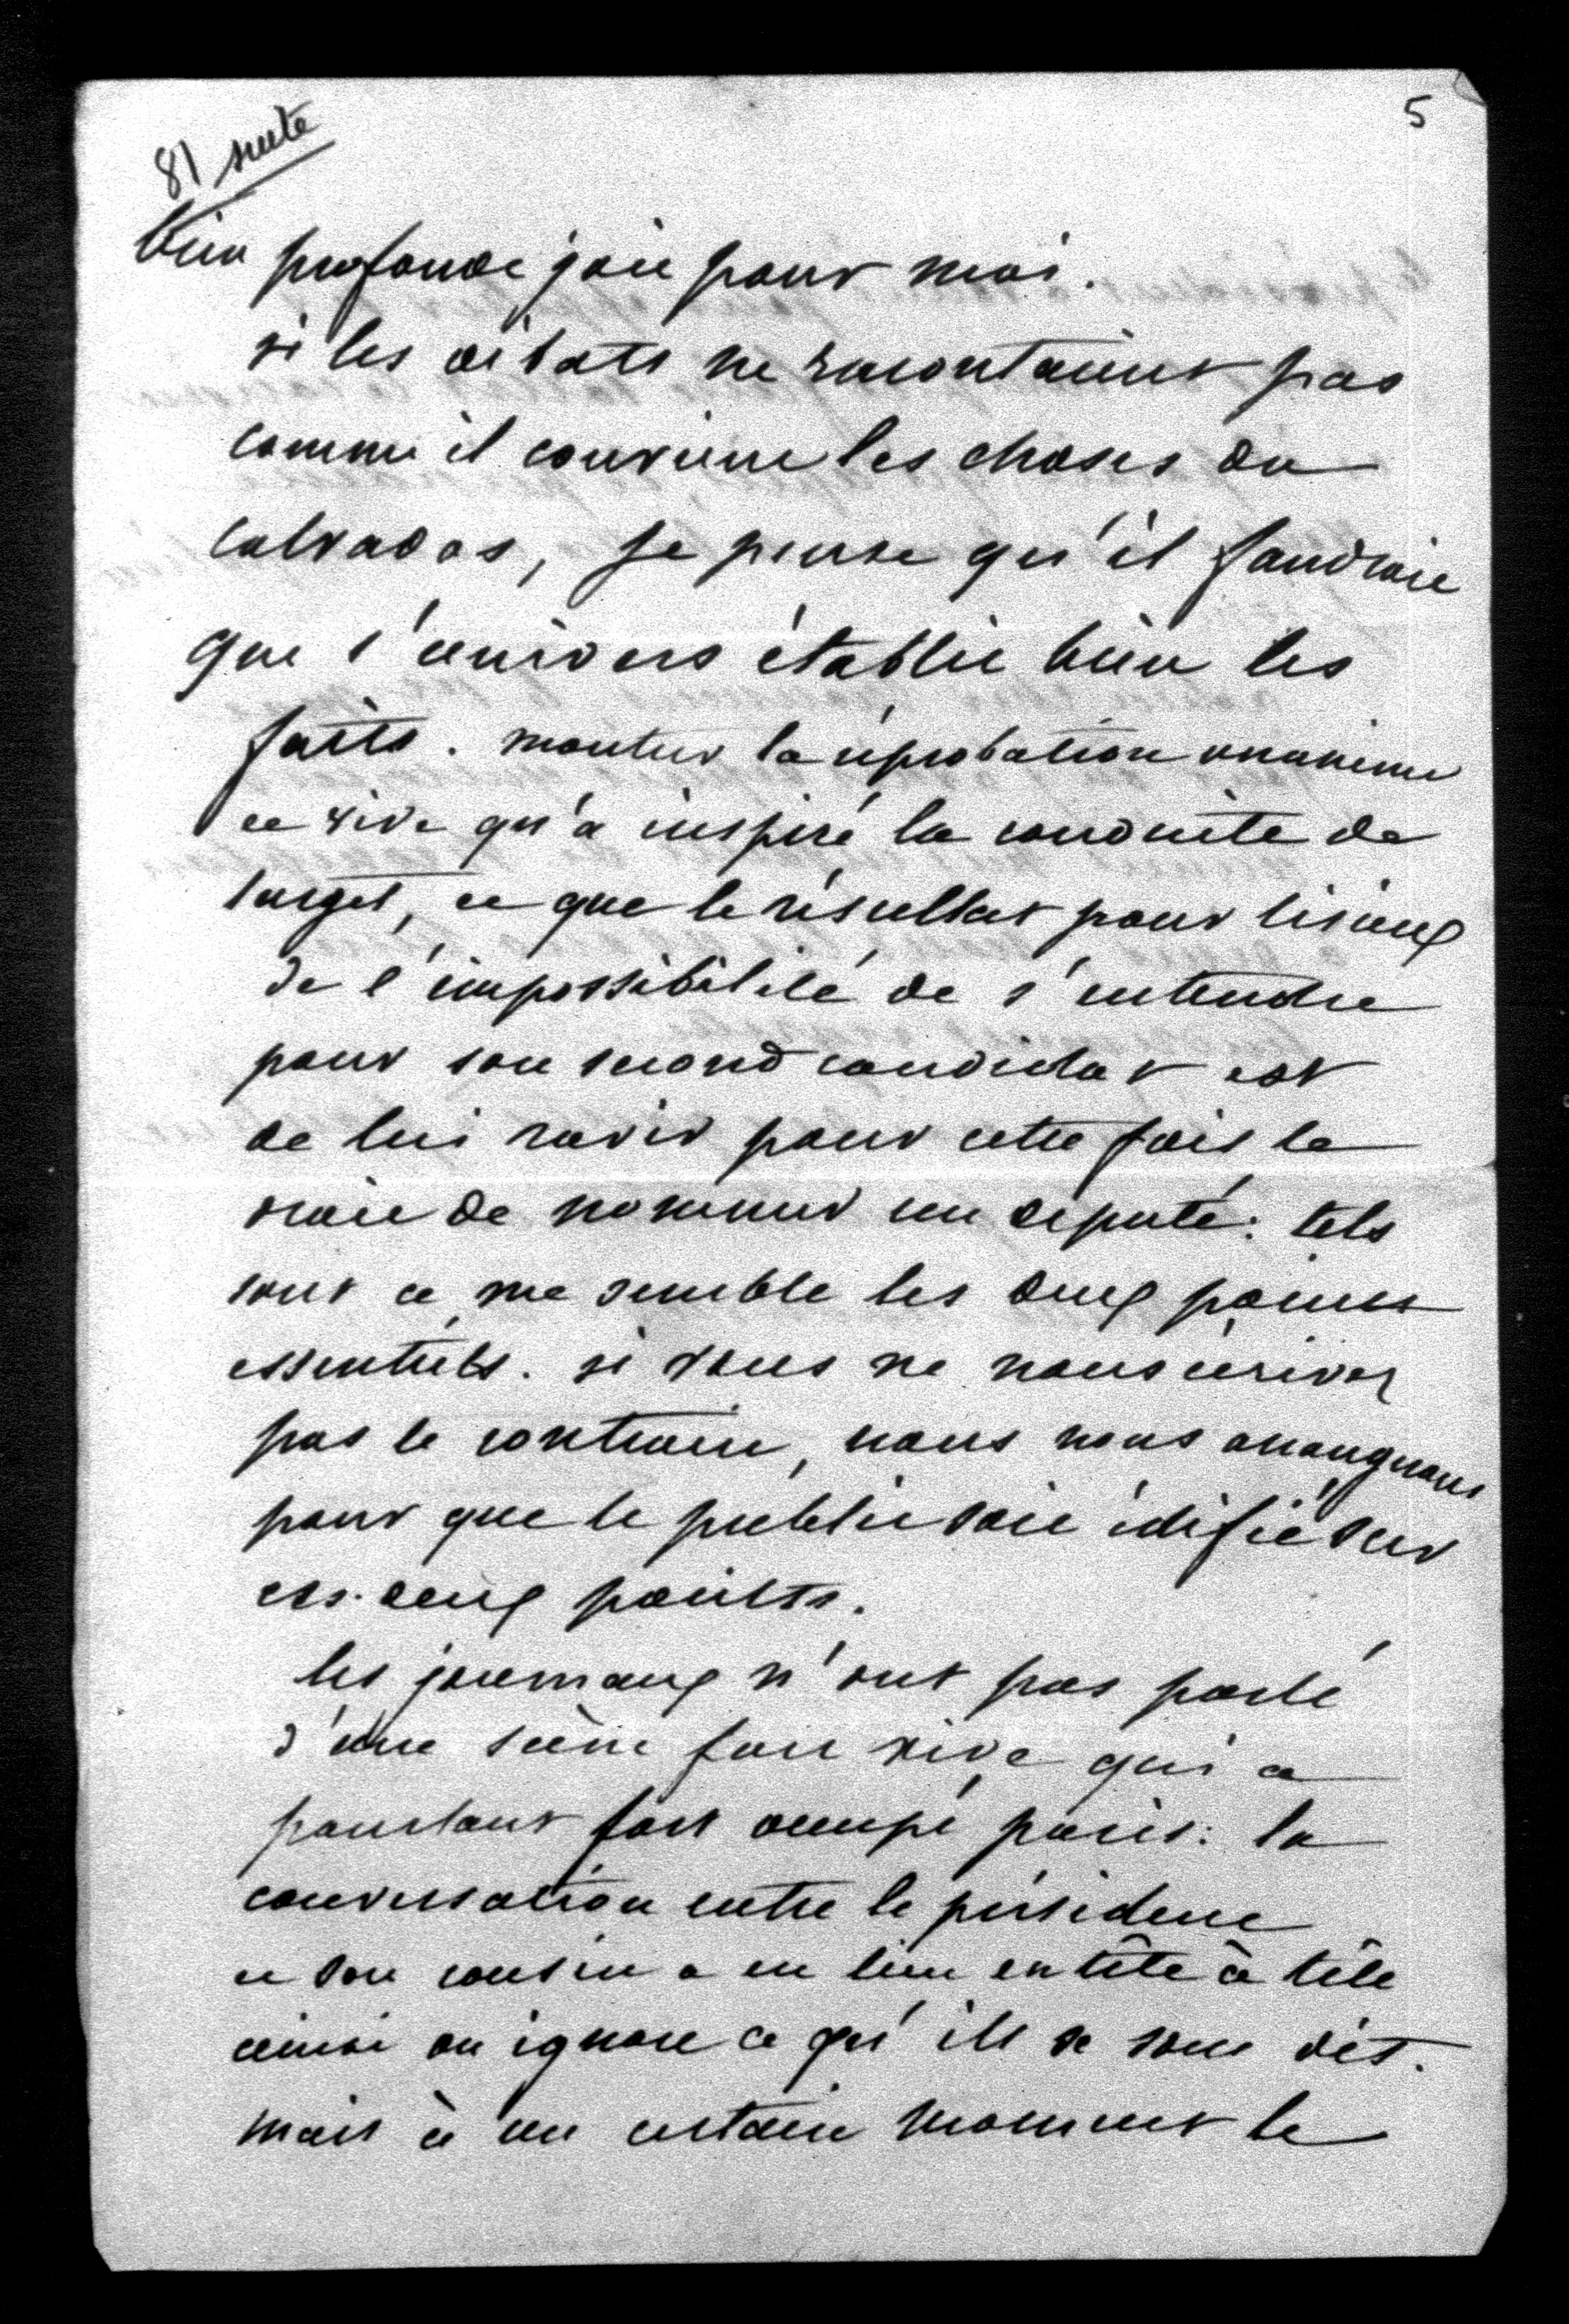 5
81 suite
bien profonde joie pour moi.
si les débats ne racontaient pas
comme il convient les choses du
calvados, je pense qu'il faudrait
que l'univers établit bien les
faits. montrer la réprobation unanime
et vive qu'a inspiré la conduite de
target, et que le résultat pour lisieux
de l'impossibilité de s'entendre
pour son second candidat est
de lui ravir pour cette fois le
droit de nommer un député: tels
sont ce me semble les deux points
essentiels. si vous ne nous écrivez
pas le contraire, nous nous arrangerons
pour que le public soit édifié sur
ces deux points.
les journaux n'ont pas parlé
d'une scène fort vive qui a
pourtant fort occupé paris: la
conversation entre le président
et son cousin a eu lieu en tête à tête
ainsi on ignore ce qu'ils se sont dit.
mais à un certain moment le